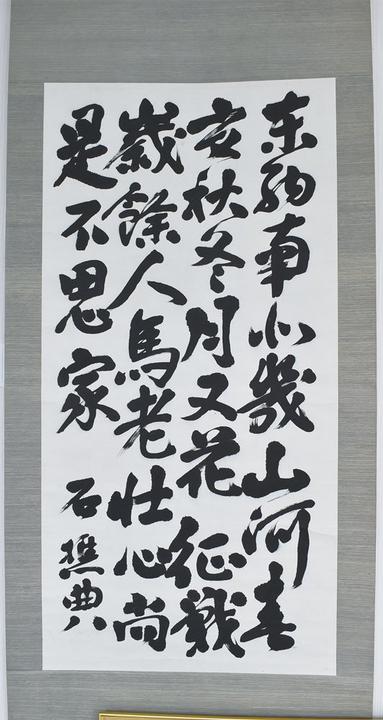 東西南北幾山河春
夏秋冬月又花征戰
歳餘人馬老壮心尚
是不思家 石樵典